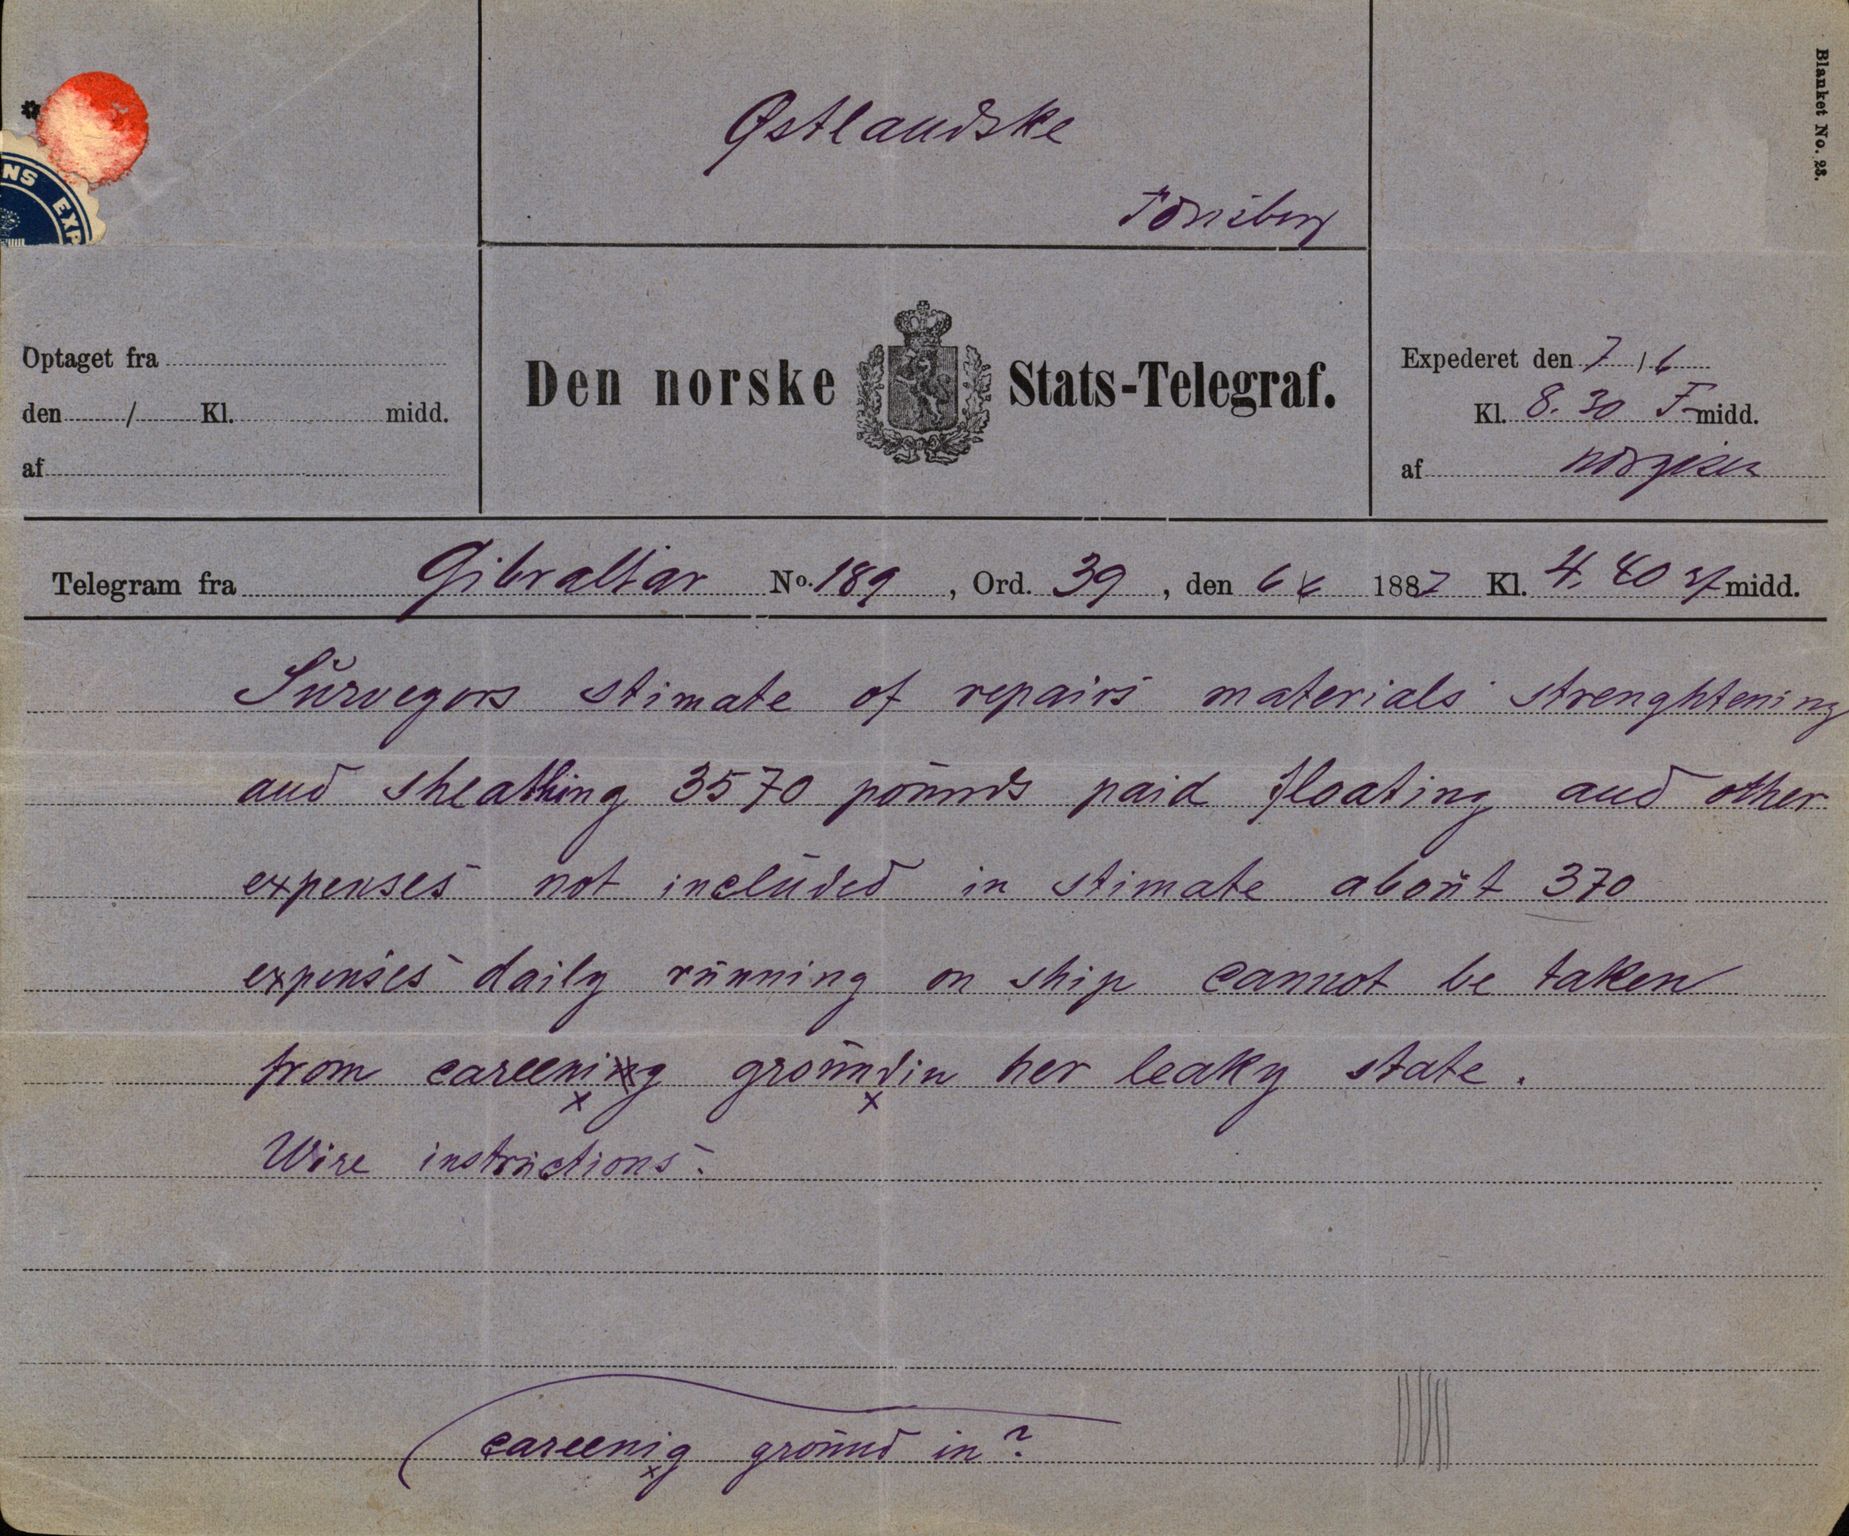 Blanket No. 23.
*
NS EXP
Østlandske
Tönsberg
Optaget fra
den / Kl. midd.
af
Den norske Stats-Telegraf.
Expederet den 7/6
Kl. 8.30 F midd.
af
Telegram fra Gibraltar No. 189, Ord. 39, den 6/6 1887 Kl. 4.40 Ef midd.
Surveyors stimate of repairs materials strenghtening
and sheathing 3570 pounds paid floating and other
expenses not included in stimate about 370
expenses daily running on ship cannot be taken
from careening groundin her leaky state.
x x
Wire instructions.
careenig ground in?
x